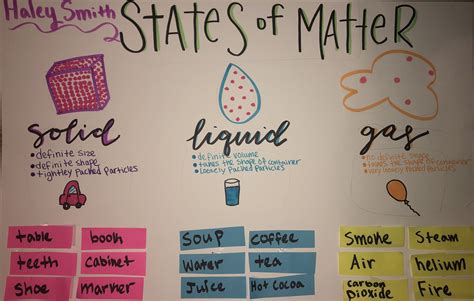 Haley Smith
STATES of MATTER
solid
• definite size
• definite shape
• tightley packed particles
liquid
• definite volume
• takes the shape of container
• loosely packed particles
gas
• no definite shape
• takes the shape of container
• very loosely packed particles
table
book
teeth
cabinet
Shoe
marker
SOUP
coffee
water
tea
Juice
Hot cocoa
Smoke
Steam
Air
helium
carbon
Dioxide
Fire